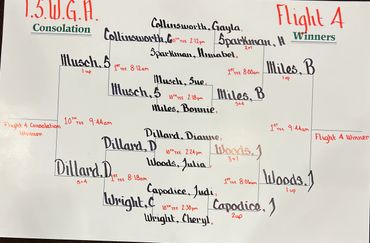 T.S.W.G.A.
Flight 4
Consolation
Winners
Collinsworth, Gayla
Collinsworth, G
10th TEE 2:12pm
Sparkman, H
2+1
Sparkman, Hunabel
Musch, S
1 up
1st TEE 8:12am
1st TEE 8:00am
Miles, B
1 up
Musch, Sue
Musch, S
10th TEE 2:18pm
Miles, B
3+2
Miles, Bonnie
Flight 4 Consolation
Winner
10th TEE 9:44am
1st TEE 9:44am
Flight 4 Winner
Dillard, Dianne
Dillard, D
10th TEE 2:24pm
Woods, J
3+1
Woods, Julia
Dillard, D
5+4
1st TEE 8:18am
1st TEE 8:06am
Woods, J
1 up
Capodice, Judi
Wright, C
10th TEE 2:30pm
Capodice, J
2up
Wright, Cheryl